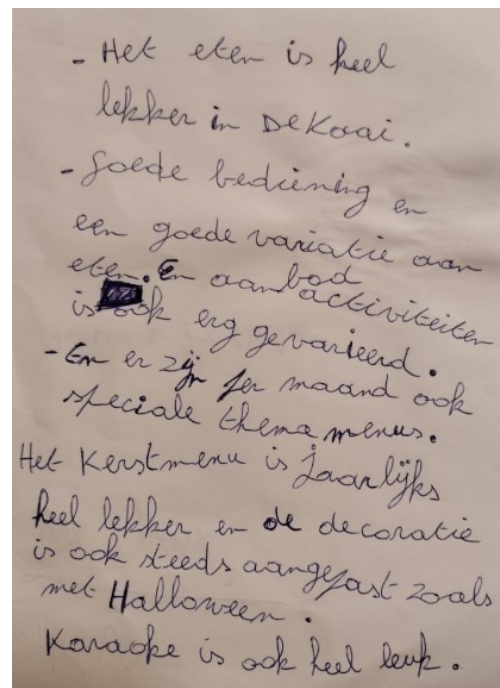 - Het eten is heel
lekker in DeKaai.
- Goede bediening en
een goede variatie aan
eten. En aanbod activiteiten
is ook erg gevarieerd.
- En er zijn per maand ook
speciale thema menus.
Het Kerstmenu is jaarlijks
heel lekker en de decoratie
is ook steeds aangepast zoals
met Halloween.
Karaoke is ook heel leuk.